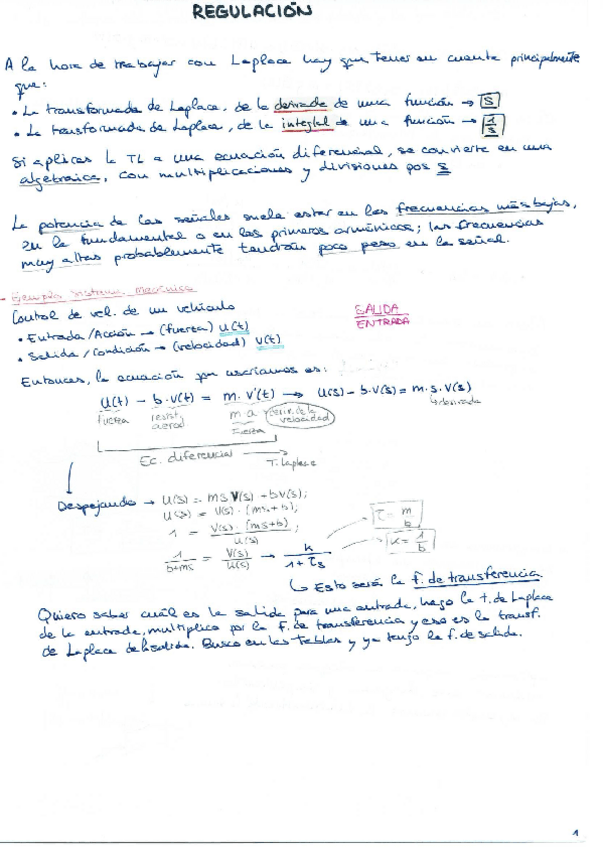 REGULACIÓN
A la hora de trabajar con Laplace hay que tener en cuenta principalmente
que:
• La transformada de Laplace, de la derivada de una función → S
• La transformada de Laplace, de la integral de una función → 1/s
Si aplicas la TL a una ecuación diferencial, se convierte en una
algebraica, con multiplicaciones y divisiones por s
La potencia de las señales suele estar en las frecuencias más bajas,
en la fundamental o en los primeros armónicos; las frecuencias
muy altas probablemente tendrán poco peso en la señal.
- Ejemplo Sistema Mecánico
Control de vel. de un vehículo
SALIDA
ENTRADA
• Entrada/Acción → (fuerza) u(t)
• Salida/Condición → (velocidad) v(t)
Entonces, la ecuación que usaríamos es:
u(t) - b·v(t) = m·v'(t) → u(s) - b·v(s) = m·s·v(s)
Fuerza resist. aerod m a deriv. de la velocidad ↳ derivada
Fuerza
Ec. diferencial → T. Laplace
Despejando → u(s) = ms V(s) - bv(s);
u(s) = v(s)·(ms+b);
1 = V(s)·(ms+b)/u(s);
τ = m/b
k = 1/b
1/(b+ms) = V(s)/u(s) → k/(1+τs)
↳ Esto será la f. de transferencia
Quiero saber cuál es la salida para una entrada, hago la t. de Laplace
de la entrada, multiplico por la f. de transferencia y eso es la transf.
de Laplace de la salida. Busco en las tablas y ya tengo la f. de salida.
1